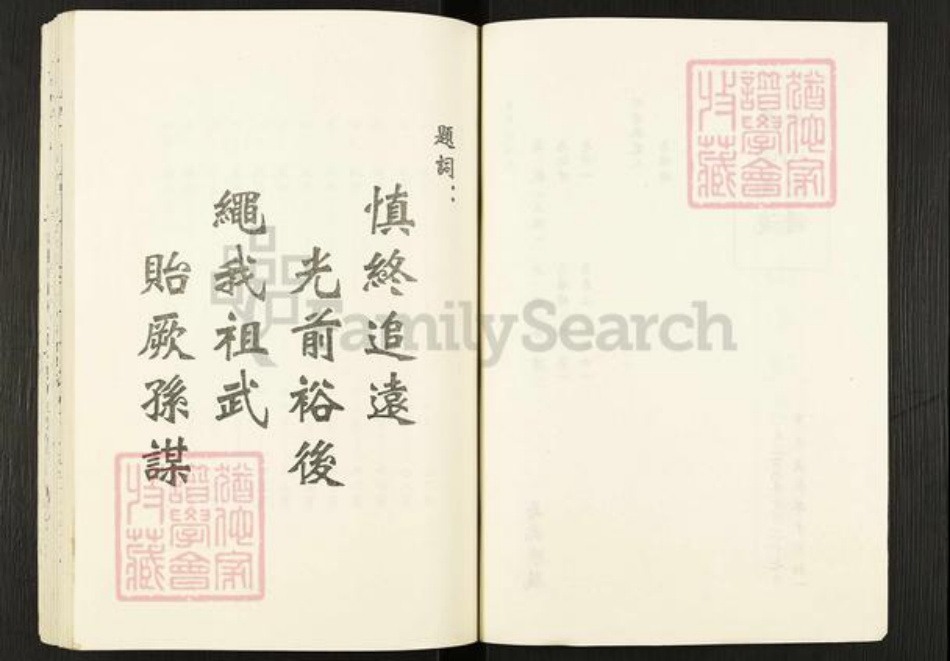 題詞：
慎終追遠
光前裕後
繩我祖武
貽厥孫謀
猶他家
譜學會
收藏
猶他家
譜學會
收藏
FamilySearch